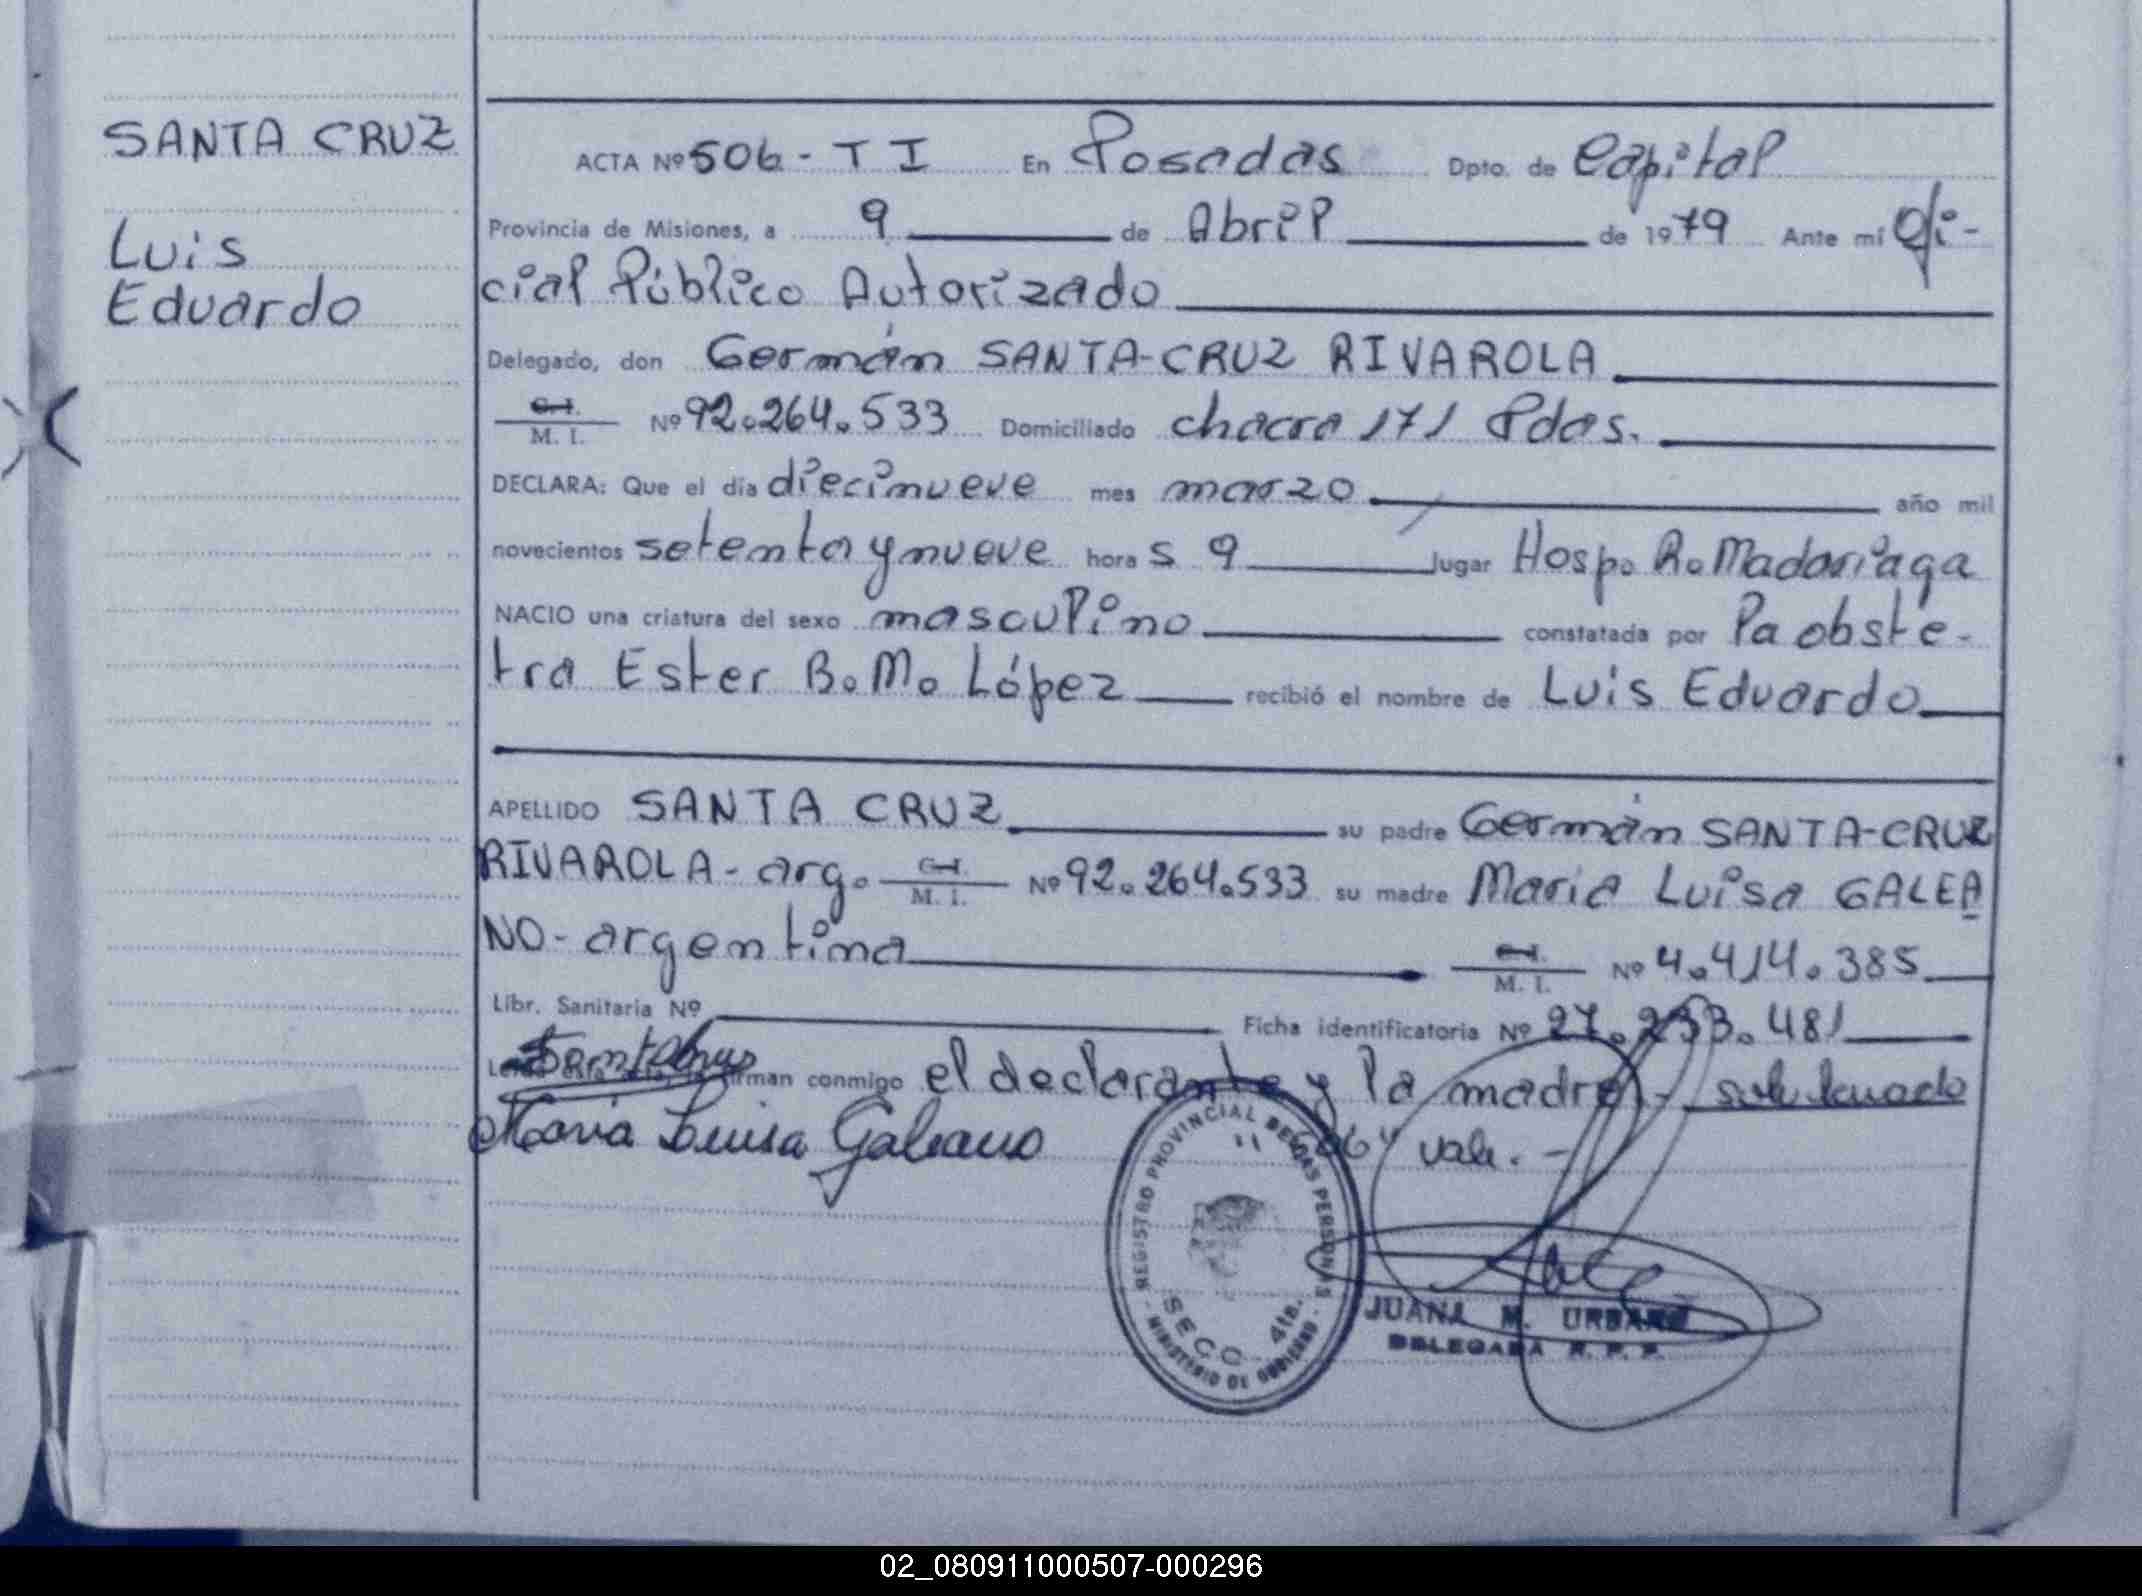 SANTA CRUZ
Luis
Eduardo
ACTA Nº 506 - T I En Posadas Dpto. de Capital
Provincia de Misiones, a 9 de Abril de 1979 Ante mí Ofi-
cial Público Autorizado
Delegado, don Germán SANTA-CRUZ RIVAROLA
C. I.
M. I. Nº 92.264.533 Domiciliado chacra 171 Pdas.
DECLARA: Que el día diecinueve mes marzo año mil
novecientos setenta y nueve hora s 9 lugar Hosp. R. Madariaga
NACIO una criatura del sexo masculino constatada por la obste-
tra Ester B. M. López recibió el nombre de Luis Eduardo
APELLIDO SANTA CRUZ su padre Germán SANTA-CRUZ
RIVAROLA - arg. C. I.
M. I. Nº 92.264.533 su madre Maria Luisa GALEA
NO - argentina C. I.
M. I. Nº 4.414.385
Libr. Sanitaria Nº Ficha identificatoria Nº 27.233.481
Leída esta acta, la firman conmigo el declarante y la madre.- sobre borrado
María Luisa Galeano "506" vale. -
REGISTRO PROVINCIAL DE LAS PERSONAS
SECC. 4ta.
MINISTERIO DE GOBIERNO
JUANA M. URBANO
DELEGADA R. P. P.
02_080911000507-000296